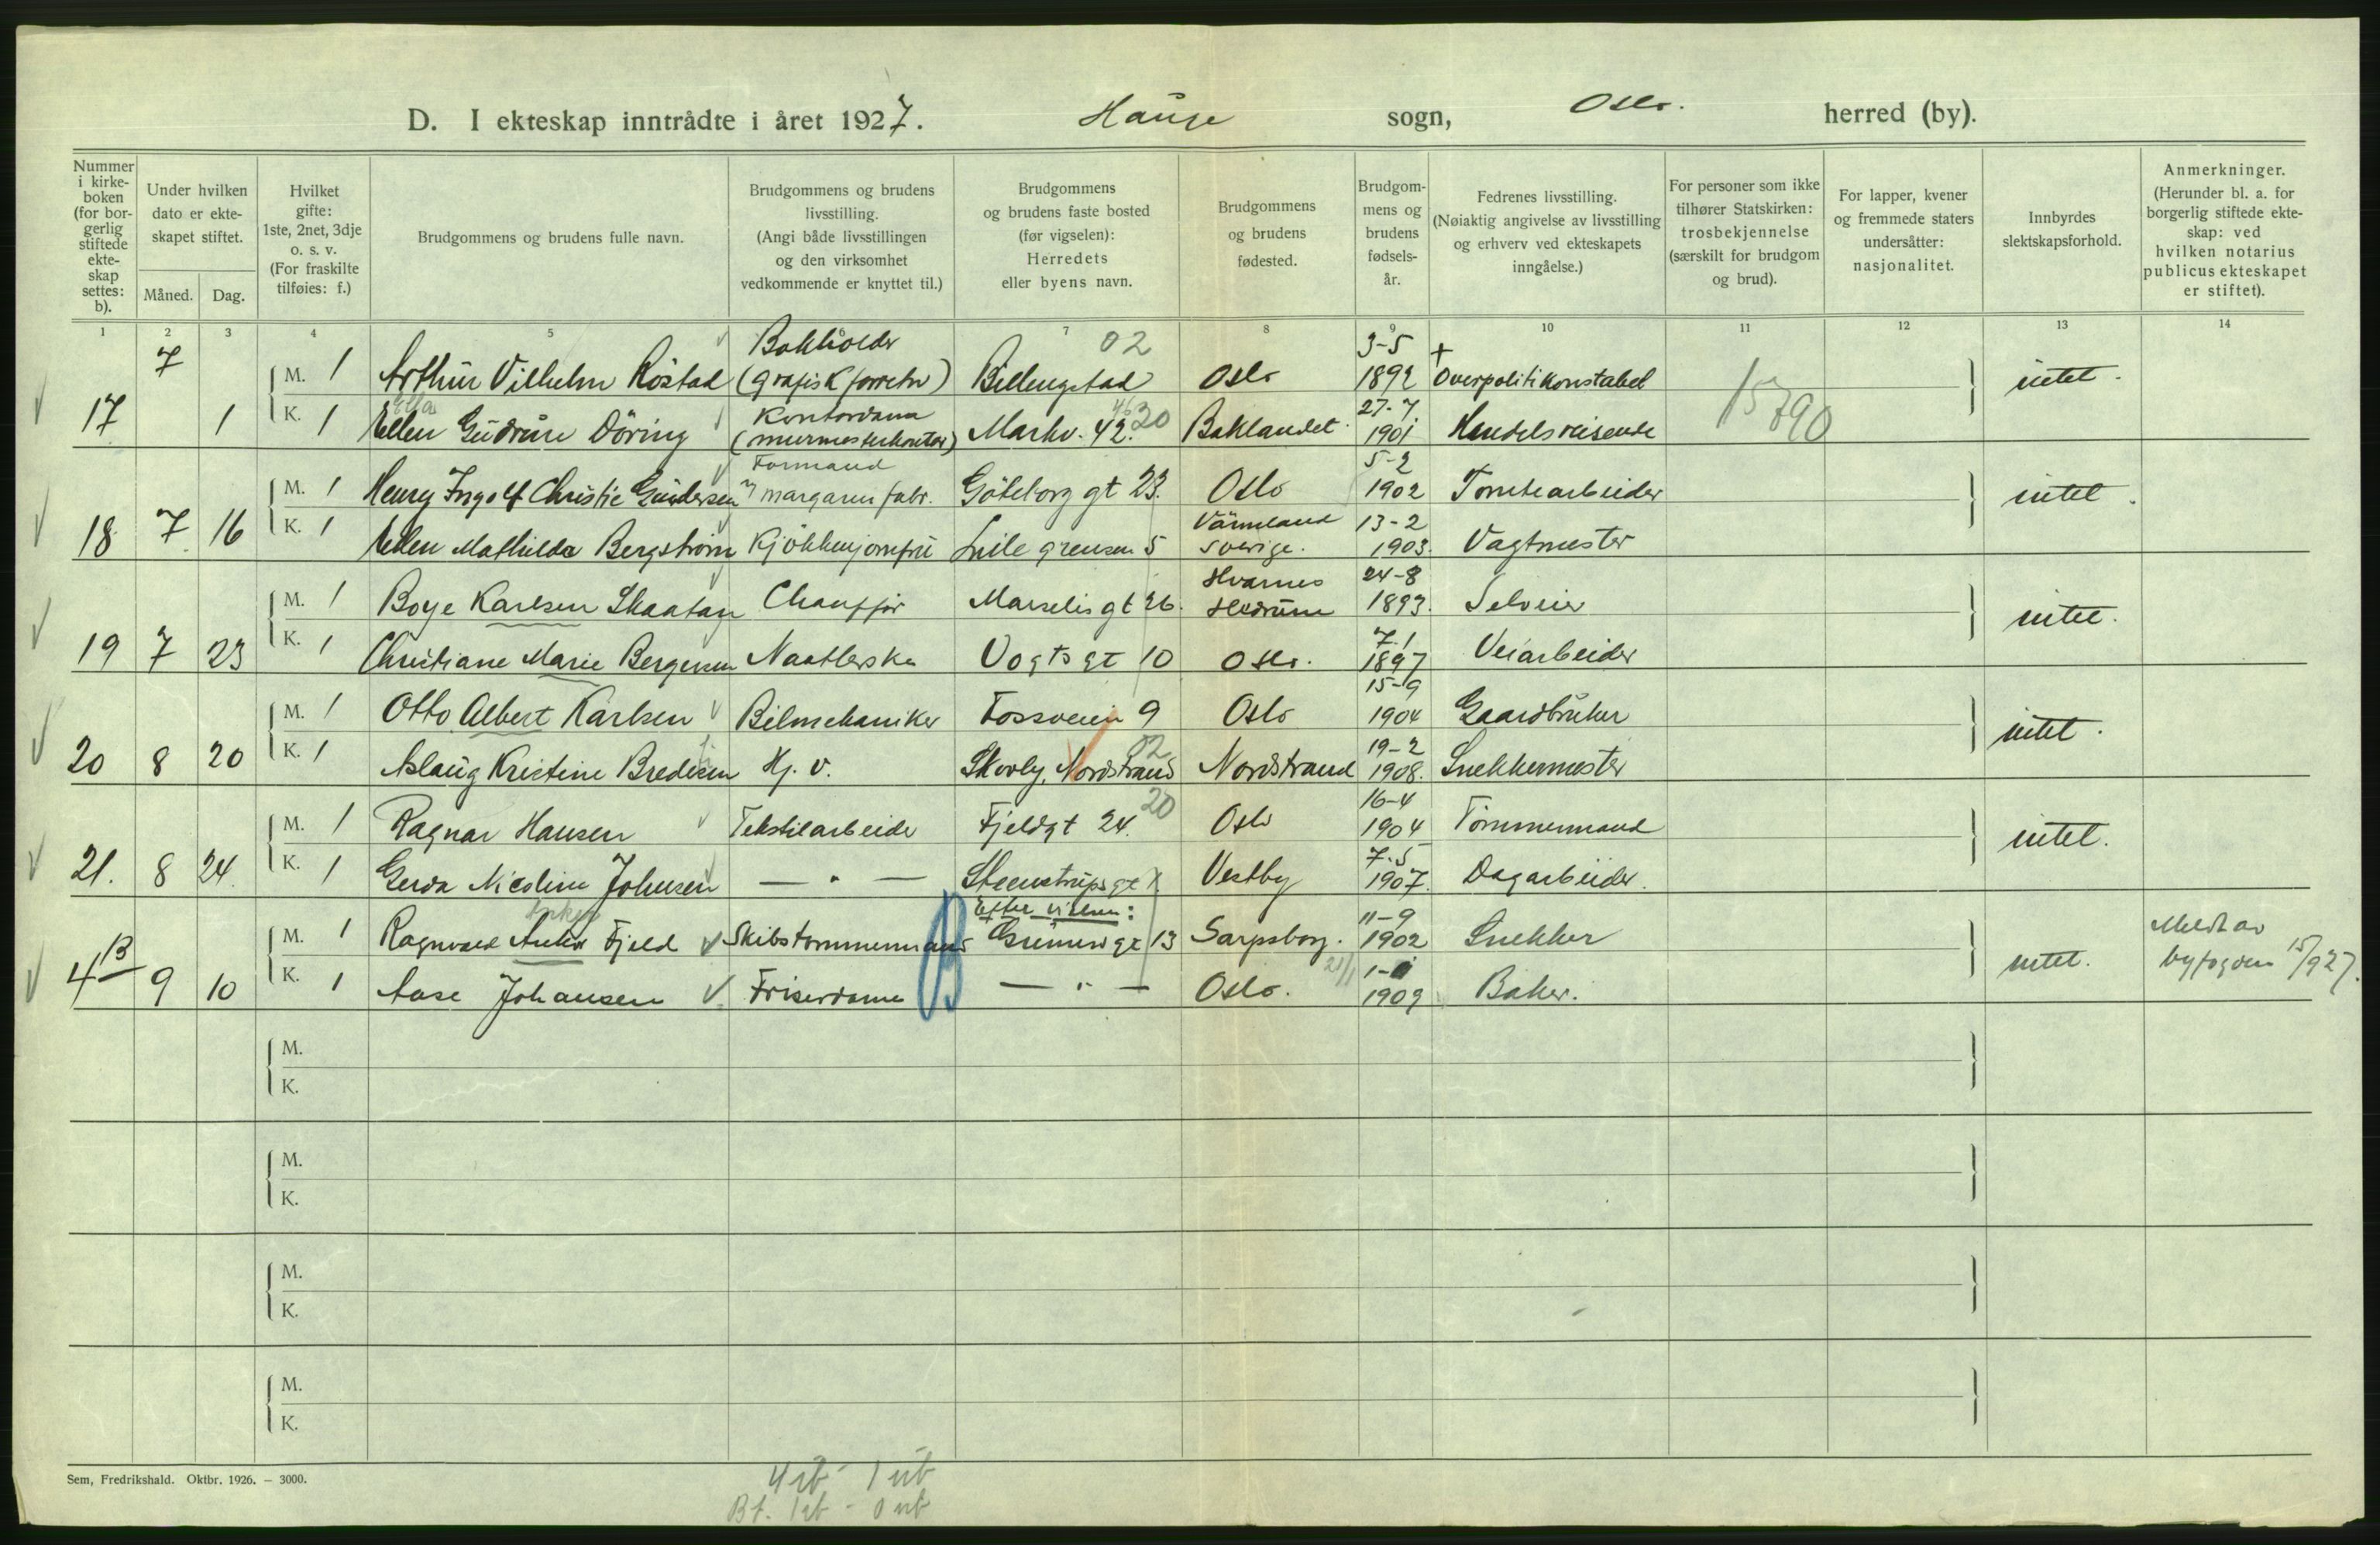 D. I ekteskap inntrådte i året 1927. Hauge sogn, Oslo. herred (by).
Nummer i kirke-boken (for bor-gerlig stiftede ekte-skap settes: b).
Under hvilken dato er ekte-skapet stiftet.
Måned. Dag.
Hvilket gifte: 1ste, 2net, 3dje o. s. v. (For fraskilte tilføies: f.)
Brudgommens og brudens fulle navn.
Brudgommens og brudens livsstilling. (Angi både livsstillingen og den virksomhet vedkommende er knyttet til.)
Brudgommens og brudens faste bosted (før vigselen): Herredets eller byens navn.
Brudgommens og brudens fødested.
Brudgom-mens og brudens fødsels-år.
Fedrenes livsstilling. (Nøiaktig angivelse av livsstilling og erhverv ved ekteskapets inngåelse.)
For personer som ikke tilhører Statskirken: trosbekjennelse (særskilt for brudgom og brud).
For lapper, kvener og fremmede staters undersåtter: nasjonalitet.
Innbyrdes slektskapsforhold.
Anmerkninger. (Herunder bl. a. for borgerlig stiftede ekte-skap: ved hvilken notarius publicus ekteskapet er stiftet).
1 2 3 4 5 6 7 8 9 10 11 12 13 14
7 Bokholder 02 3-5 +
M. 1 Arthur Vilhelm Röstad (grafisk forretn) Billingstad Oslo 1892 Overpolitikonstabel intet.
Kontordame 27-7 15790
17 1 K. 1 Ellen Gudrun Döring (murmesterkontor) Markv. 42. 20 Baklandet. 1901 Handelsreisende
Formand 5-2
M. 1 Henry Ingolf Christie Gundersen margarinfabr. Göteborg gt 23. Oslo 1902 Tomtearbeider intet.
Värmland 13-2
18 7 16 K. 1 Ellen Mathilda Bergström Kjökkenjomfru Lille grensen 5 Sverige. 1903. Vagtmester
Hvarnes 24-8
M. 1 Boye Karlsen Skaatan Chauffør Marselis gt 26. Hedrum 1893. Selveier intet.
7.1
19 7 23 K. 1 Christiane Marie Bergersen Naatlerske Vogts gt 10 Oslo. 1897 Veiarbeider
15-9
M. 1 Otto Albert Karlsen Bilmekaniker Fossveien 9 Oslo 1904 Gaardbruker intet.
02 19-2
20 8 20 K. 1 Aslaug Kristine Bredesen Hj. v. Skovly, Nordstrand Nordstrand 1908. Snekkermester
20 16-4
M. 1 Ragnar Hansen Tekstilarbeide Fjeldgt 24. Oslo 1904 Tömmermand intet.
7.5
21. 8 24. K. 1 Gerda Nicoline Johnsen — " — Steenstrups gt Vestby 1907. Dagarbeider.
Efter vielsen: 11-9
M. 1 Ragnvald Anker Fjeld Skibstömmermand Grünersgt 13 Sarpsborg. 1902 Snekker Meldt av
21/1 1- intet. byfogden 15/927.
4 B 9 10 K. 1 Aase Johansen Friserdame — " — Oslo. 1909 Baker.
M.
K.
M.
K.
M.
K.
M.
K.
Sem, Fredrikshald. Oktbr. 1926. — 3000.